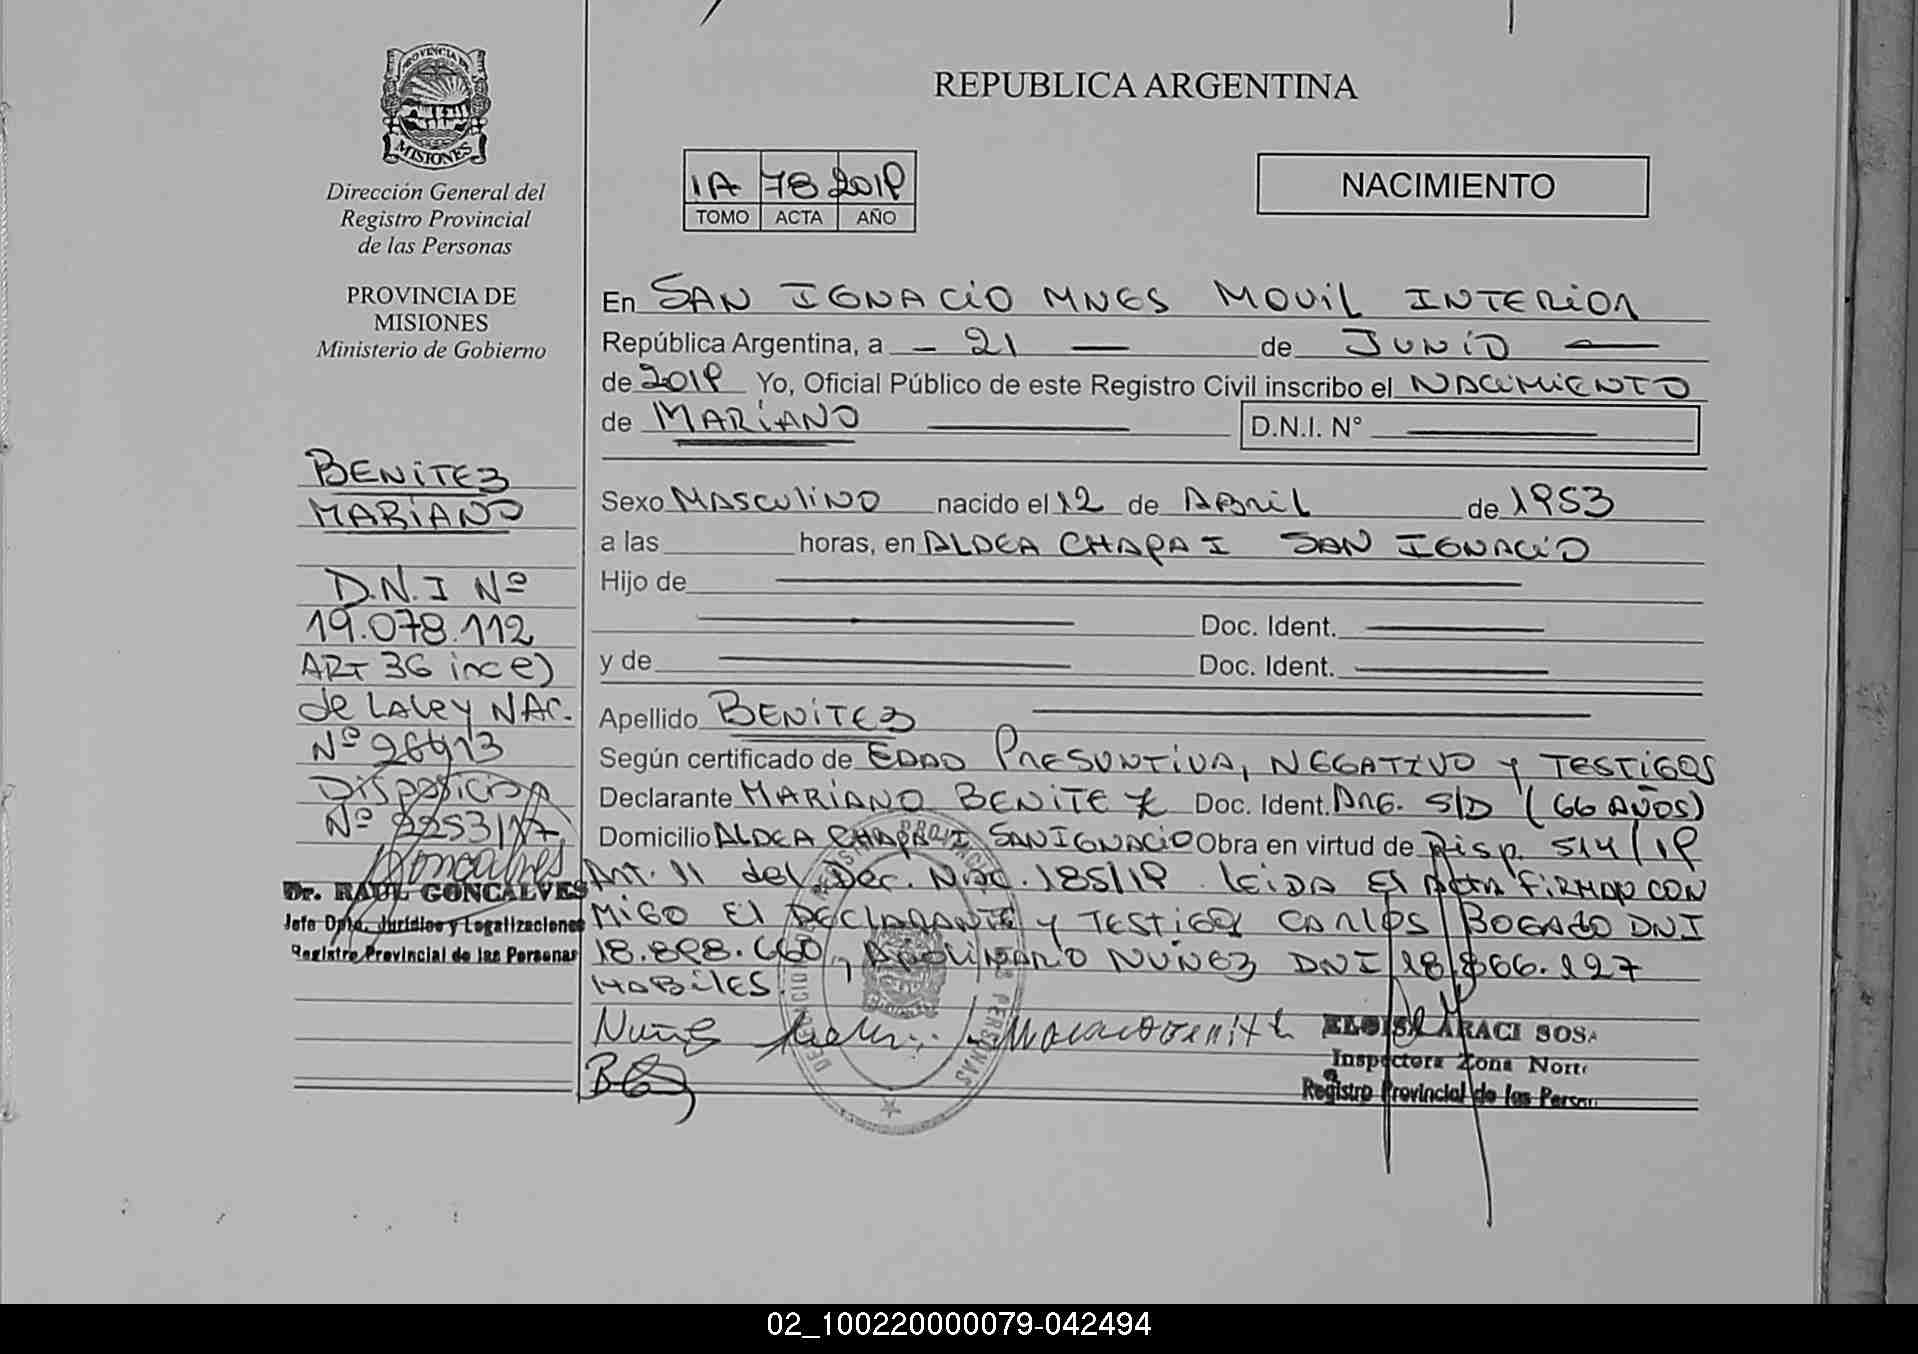 PROVINCIA DE
MISIONES
Dirección General del
Registro Provincial
de las Personas
PROVINCIA DE
MISIONES
Ministerio de Gobierno
BENITEZ
MARIANO
D.N.I Nº
19.078.112
ART 36 inc e)
de LA Ley NAC.
Nº 26413
Disposicion
Nº 2253/17
Goncalves
Dr. RAUL GONCALVES
Jefe Dpto. Jurídico y Legalizaciones
Registro Provincial de las Personas
REPUBLICA ARGENTINA
1A 78 2019
TOMO ACTA AÑO
NACIMIENTO
En SAN IGNACIO MNES MOVIL INTERIOR
República Argentina, a - 21 — de JUNIO —
de 2019 Yo, Oficial Público de este Registro Civil inscribo el NACIMIENTO
de MARIANO — D.N.I. N° —
Sexo MASCULINO nacido el 12 de ABRIL de 1953
a las horas, en ALDEA CHAPA I SAN IGNACIO
Hijo de —
— Doc. Ident. —
y de — Doc. Ident. —
Apellido BENITEZ —
Según certificado de EDAD PRESUNTIVA, NEGATIVO y TESTIGOS
Declarante MARIANO BENITEZ Doc. Ident. ARG. S/D (66 AÑOS)
Domicilio ALDEA CHAPA I SAN IGNACIO Obra en virtud de Disp. 514/19
Art. 11 del Dec. Nac. 185/19. LEIDA El Acta FIRMAN CON
MIGO El DECLARANTE y TESTIGOS CARLOS BOGADO DNI
18.898.660, APOLINARIO NUÑEZ DNI 18.866.127
HABILES
Nuñez Mariano Benitez
ELOISA ARACI SOSA
Inspectora Zona Norte
Registro Provincial de las Person
02_100220000079-042494